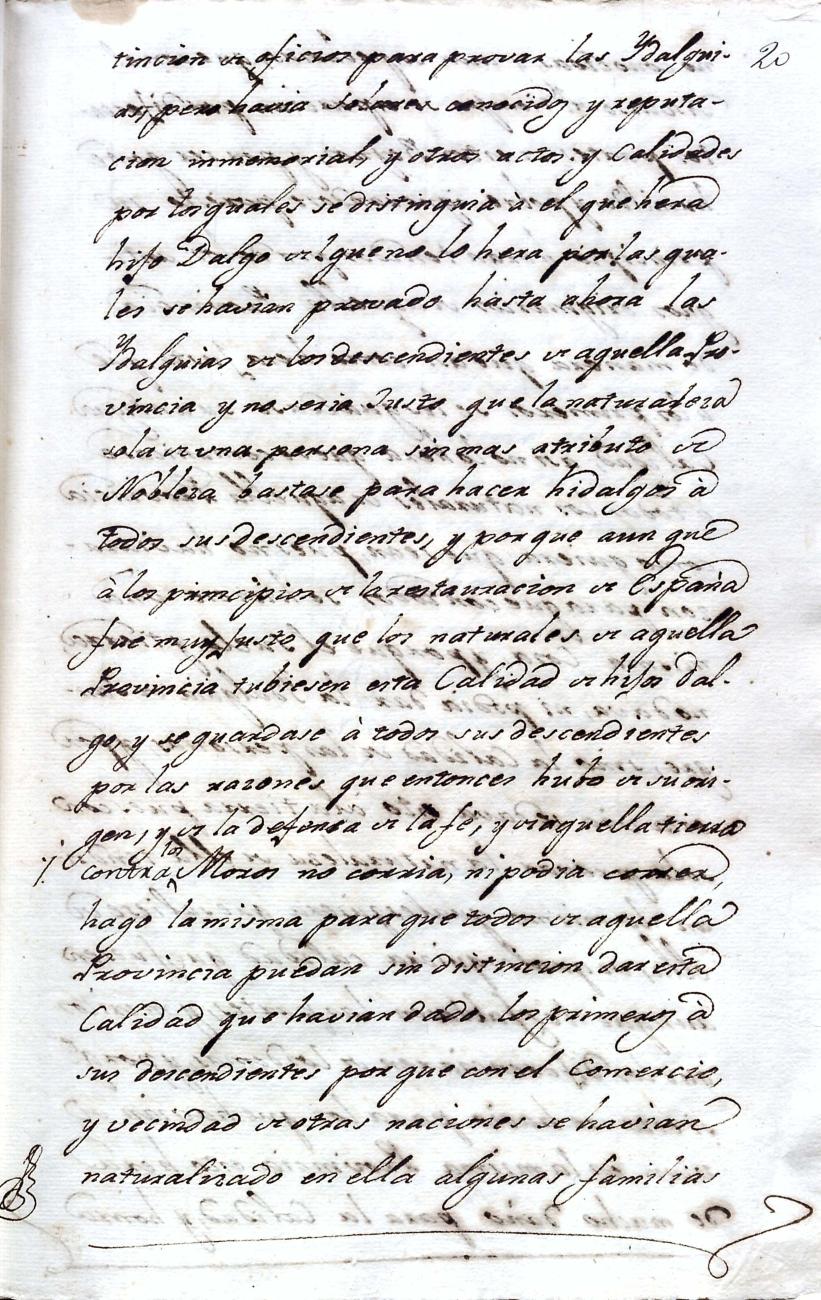 20
tincion de oficios para provar las Ydalgui-
as, pero havia solares conocidos y reputa-
cion inmemorial, y otros actos y Calidades
por los quales se distinguia à el que hera
hijo Dalgo del que no lo hera por las qua-
les se havian provado hasta ahora las
Ydalguias de los descendientes de aquella Pro-
vincia y no seria Justo que la naturaleza
sola de una persona sin mas atributo de
Nobleza bastase para hacer hidalgos à
todos sus descendientes, y por que aun que
à los principios de la restauracion de España
fue muy Justo que los naturales de aquella
Provincia tubiesen esta Calidad de hijos dal-
go, y se guardase à todos sus descendientes
por las razones que entonces hubo de su ori-
gen, y de la defensa de la fé, y de aquella tierra
contra los Moros no corria, ni podia correr,
hago la misma para que todos de aquella
Provincia puedan sin distincion dar esta
Calidad que havian dado los primeros à
sus descendientes por que con el Comercio,
y vecindad de otras naciones se havian
naturalizado en ella algunas familias